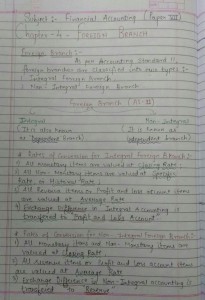 Subject :- Financial Accounting (Paper VII)
Chapter - 4 - FOREIGN BRANCH
Foreign Branch :-
As per Accounting Standard 11,
foreign branches are classified into two types :-
Integral Foreign Branch.
Non-Integral Foreign Branch.
Foreign Branch (AS-11)
Integral Non-Integral
(It is also known (It is known as
as Dependent Branch) Independent branch)
* Rates of Conversion for Integral Foreign Branch :-
1) All monetary items are valued at Closing Rate
2) All Non-Monetary items are valued at Specific
Rate or Historical Rate
3) All Revenue items or Profit and loss account items
are valued at Average Rate
4) Exchange Difference in Integral Accounting is
transferred to Profit and Loss Account
* Rates of Conversion for Non-Integral Foreign Branch :-
1) All monetary items and Non-Monetary items are
valued at Closing Rate
2) All Revenue items or Profit and Loss account items
are valued at Average Rate
3) Exchange Difference in Non-Integral accounting is
transferred to Reserve